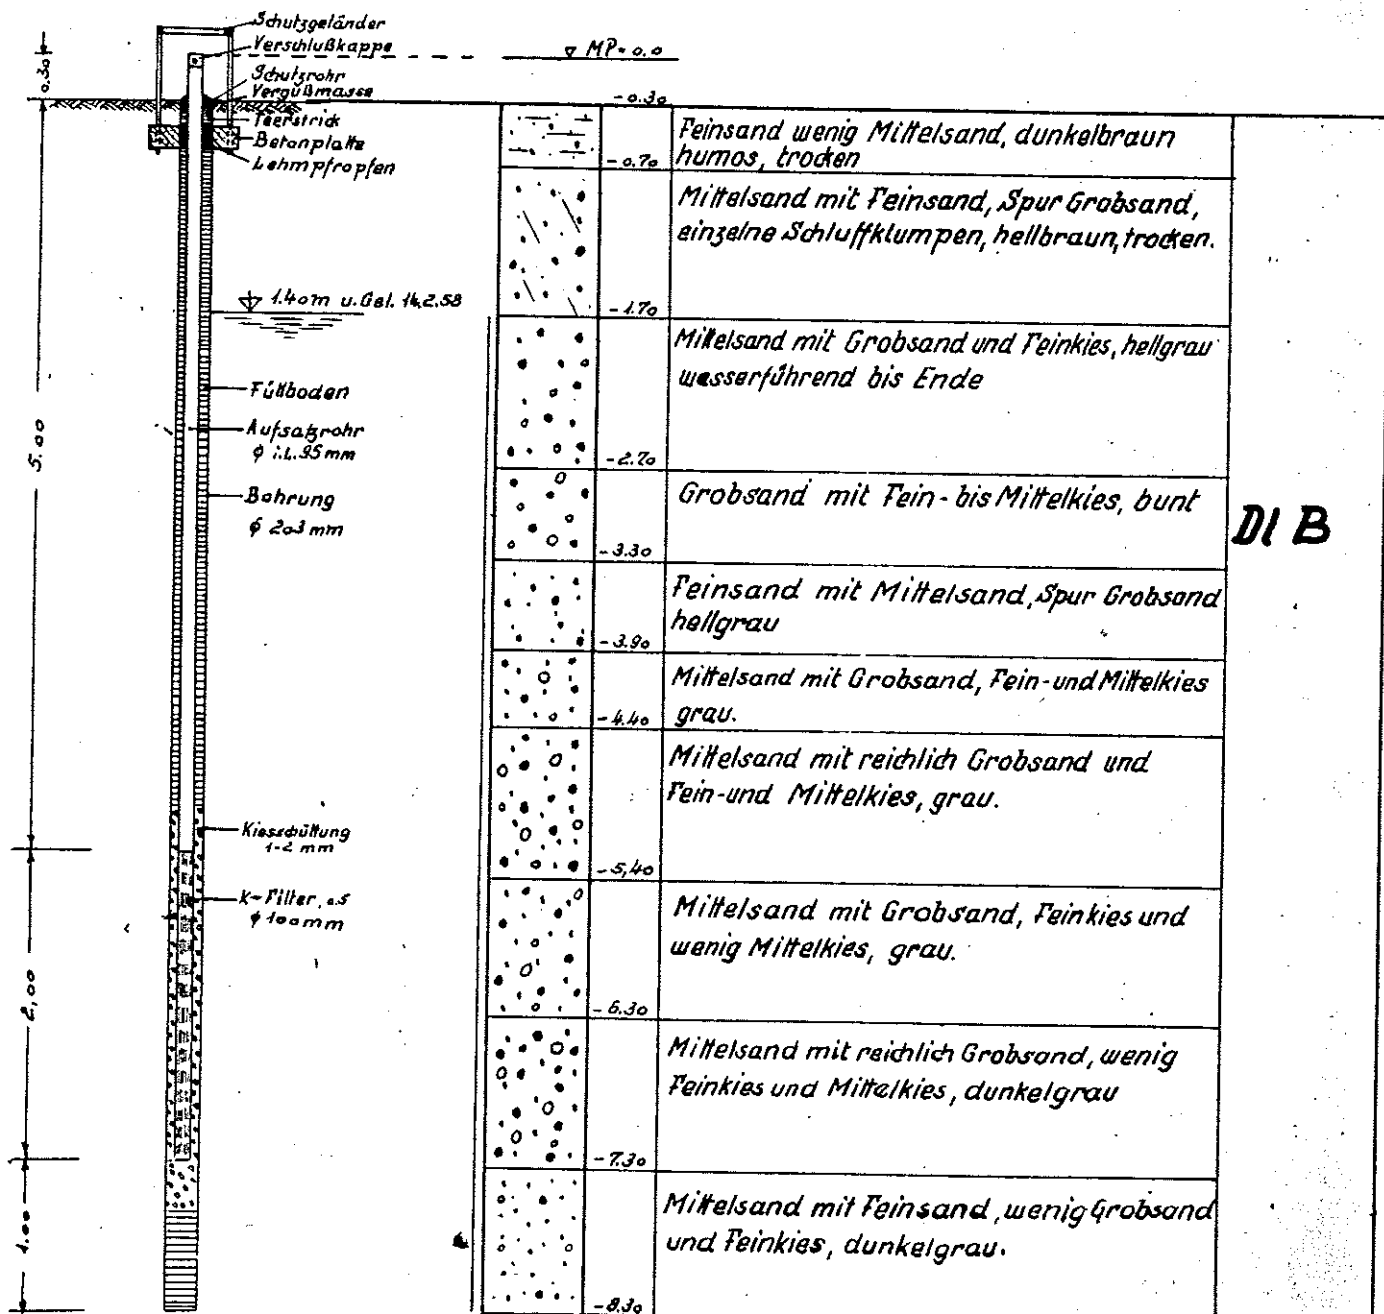 Schutzgeländer
Verschlußkappe
▽ MP = 0.0
0.30
Schutzrohr
Vergußmasse
Teerstrick
Betonplatte
Lehmpfropfen
1.40m u. Gel. 14.2.58
Füllboden
Aufsatzrohr
ϕ i.L. 95 mm
Bohrung
ϕ 203 mm
5.00
Kiesschüttung
1-2 mm
K-Filter, 0.5
ϕ 100 mm
2,00
1.00
-0.30
Feinsand wenig Mittelsand, dunkelbraun
humos, trocken
-0.70
Mittelsand mit Feinsand, Spur Grobsand,
einzelne Schluffklumpen, hellbraun, trocken.
-1.70
Mittelsand mit Grobsand und Feinkies, hellgrau
wasserführend bis Ende
-2.70
Grobsand mit Fein- bis Mittelkies, bunt
-3.30
Feinsand mit Mittelsand, Spur Grobsand
hellgrau
-3.90
Mittelsand mit Grobsand, Fein- und Mittelkies
grau.
-4.40
Mittelsand mit reichlich Grobsand und
Fein- und Mittelkies, grau.
-5,40
Mittelsand mit Grobsand, Feinkies und
wenig Mittelkies, grau.
-6.30
Mittelsand mit reichlich Grobsand, wenig
Feinkies und Mittelkies, dunkelgrau
-7.30
Mittelsand mit Feinsand, wenig Grobsand
und Feinkies, dunkelgrau.
-8.30
DI B